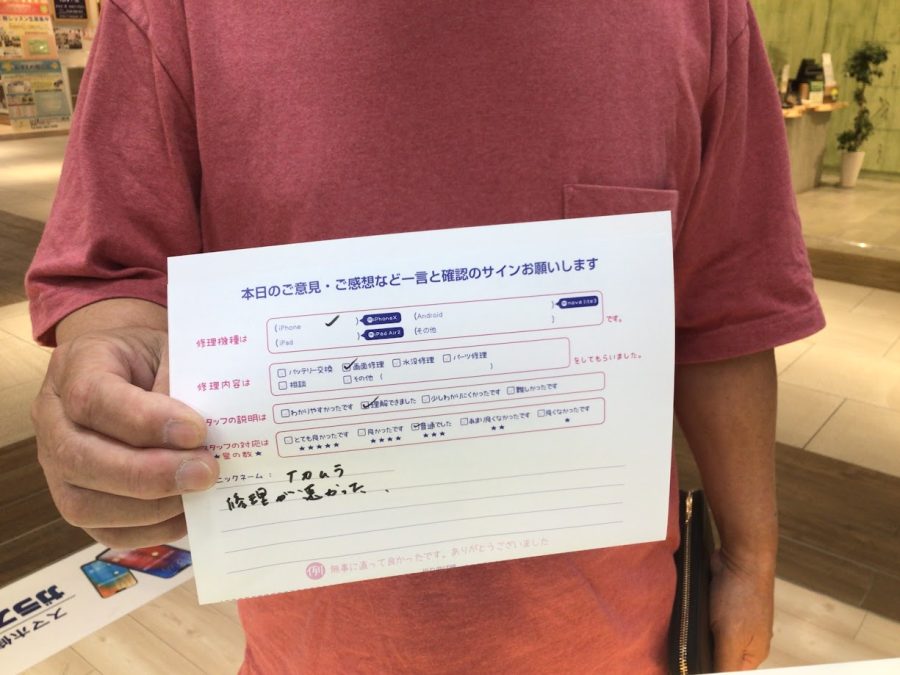 本日のご意見・ご感想など一言と確認のサインお願いします
修理機種は
(iPhone ✓ ) iPhoneX (Android ) nova lite3
(iPad ) iPad Air2 (その他 ) です。
修理内容は
□バッテリー交換 ☑画面修理 □水没修理 □パーツ修理
□相談 □その他 ( ) をしてもらいました。
スタッフの説明は
□わかりやすかったです ☑理解できました □少しわかりにくかったです □難しかったです
スタッフの対応は
★星の数★
□とても良かったです □良かったです ☑普通でした □あまり良くなかったです □良くなかったです
★★★★★ ★★★★ ★★★ ★★ ★
ニックネーム:
修理が悪かった
例 無事に直って良かったです。ありがとうございました
スマホ修
ガラス